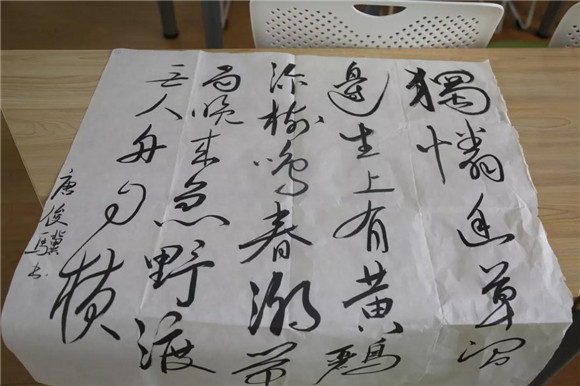 獨憐幽草澗
邊生上有黄鸝
深樹鳴春潮帶
雨晚来急野渡
无人舟自横
唐俊驥书